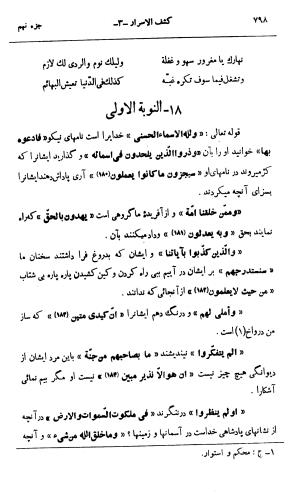 ۷۹۸ کشف الاسرار -۳- جزء نهم
نهارك يا مغرور سهو و غفلة وليلك نوم والردى لك لازم
وتشغل فيما سوف تكره غبّه كذلك في الدّنيا تعيش البهائم
۱۸- النوبة الاولى
قوله تعالى : «ولله الاسماء الحسنى» خدایراست نامهای نیکو «فادعوه
بها» خوانید او را بآن «وذروا الذين يلحدون في اسمائه» و گذارید ایشانرا که
کژ میروند در نامهای او «سيجزون ما كانوا يعملون (۱۸۰)» آری پاداش دهند ایشانرا
بسزای آنچه میکردند .
«وممن خلقنا امّة» و از آفریدهٔ ما گروهی است «يهدون بالحق» که راه
نمایند بحق «و به يعدلون (۱۸۱)» و داد میکنند بآن .
«والّذين كذّبوا بآياتنا» و ایشان که بدروغ فرا داشتند سخنان ما
«سنستدرجهم» بر ایشان در آییم بی راه کردن و کین کشیدن پاره پاره بی شتاب
«من حيث لايعلمون (۱۸۲)» از آنجائی که ندانند .
«واملى لهم» و درنگ دهم ایشانرا «ان كيدى متين (۱۸۳)» که ساز
من درواخ (۱) است .
«الم يتفكّروا» نیندیشند «ما بصاحبهم من جنّة» باین مرد ایشان از
دیوانگی هیچ چیز نیست «ان هو الّا نذير مبين (۱۸۴)» نیست او مگر بیم نمائی
آشکارا .
«اولم ينظروا» درنگرند «فى ملكوت السّموات والارض» در آنچه
از نشانهای پادشاهی خداست در آسمانها و زمینها ؟ «وما خلق الله من شيء» و آنچه
۱- ج : محکم و استوار .